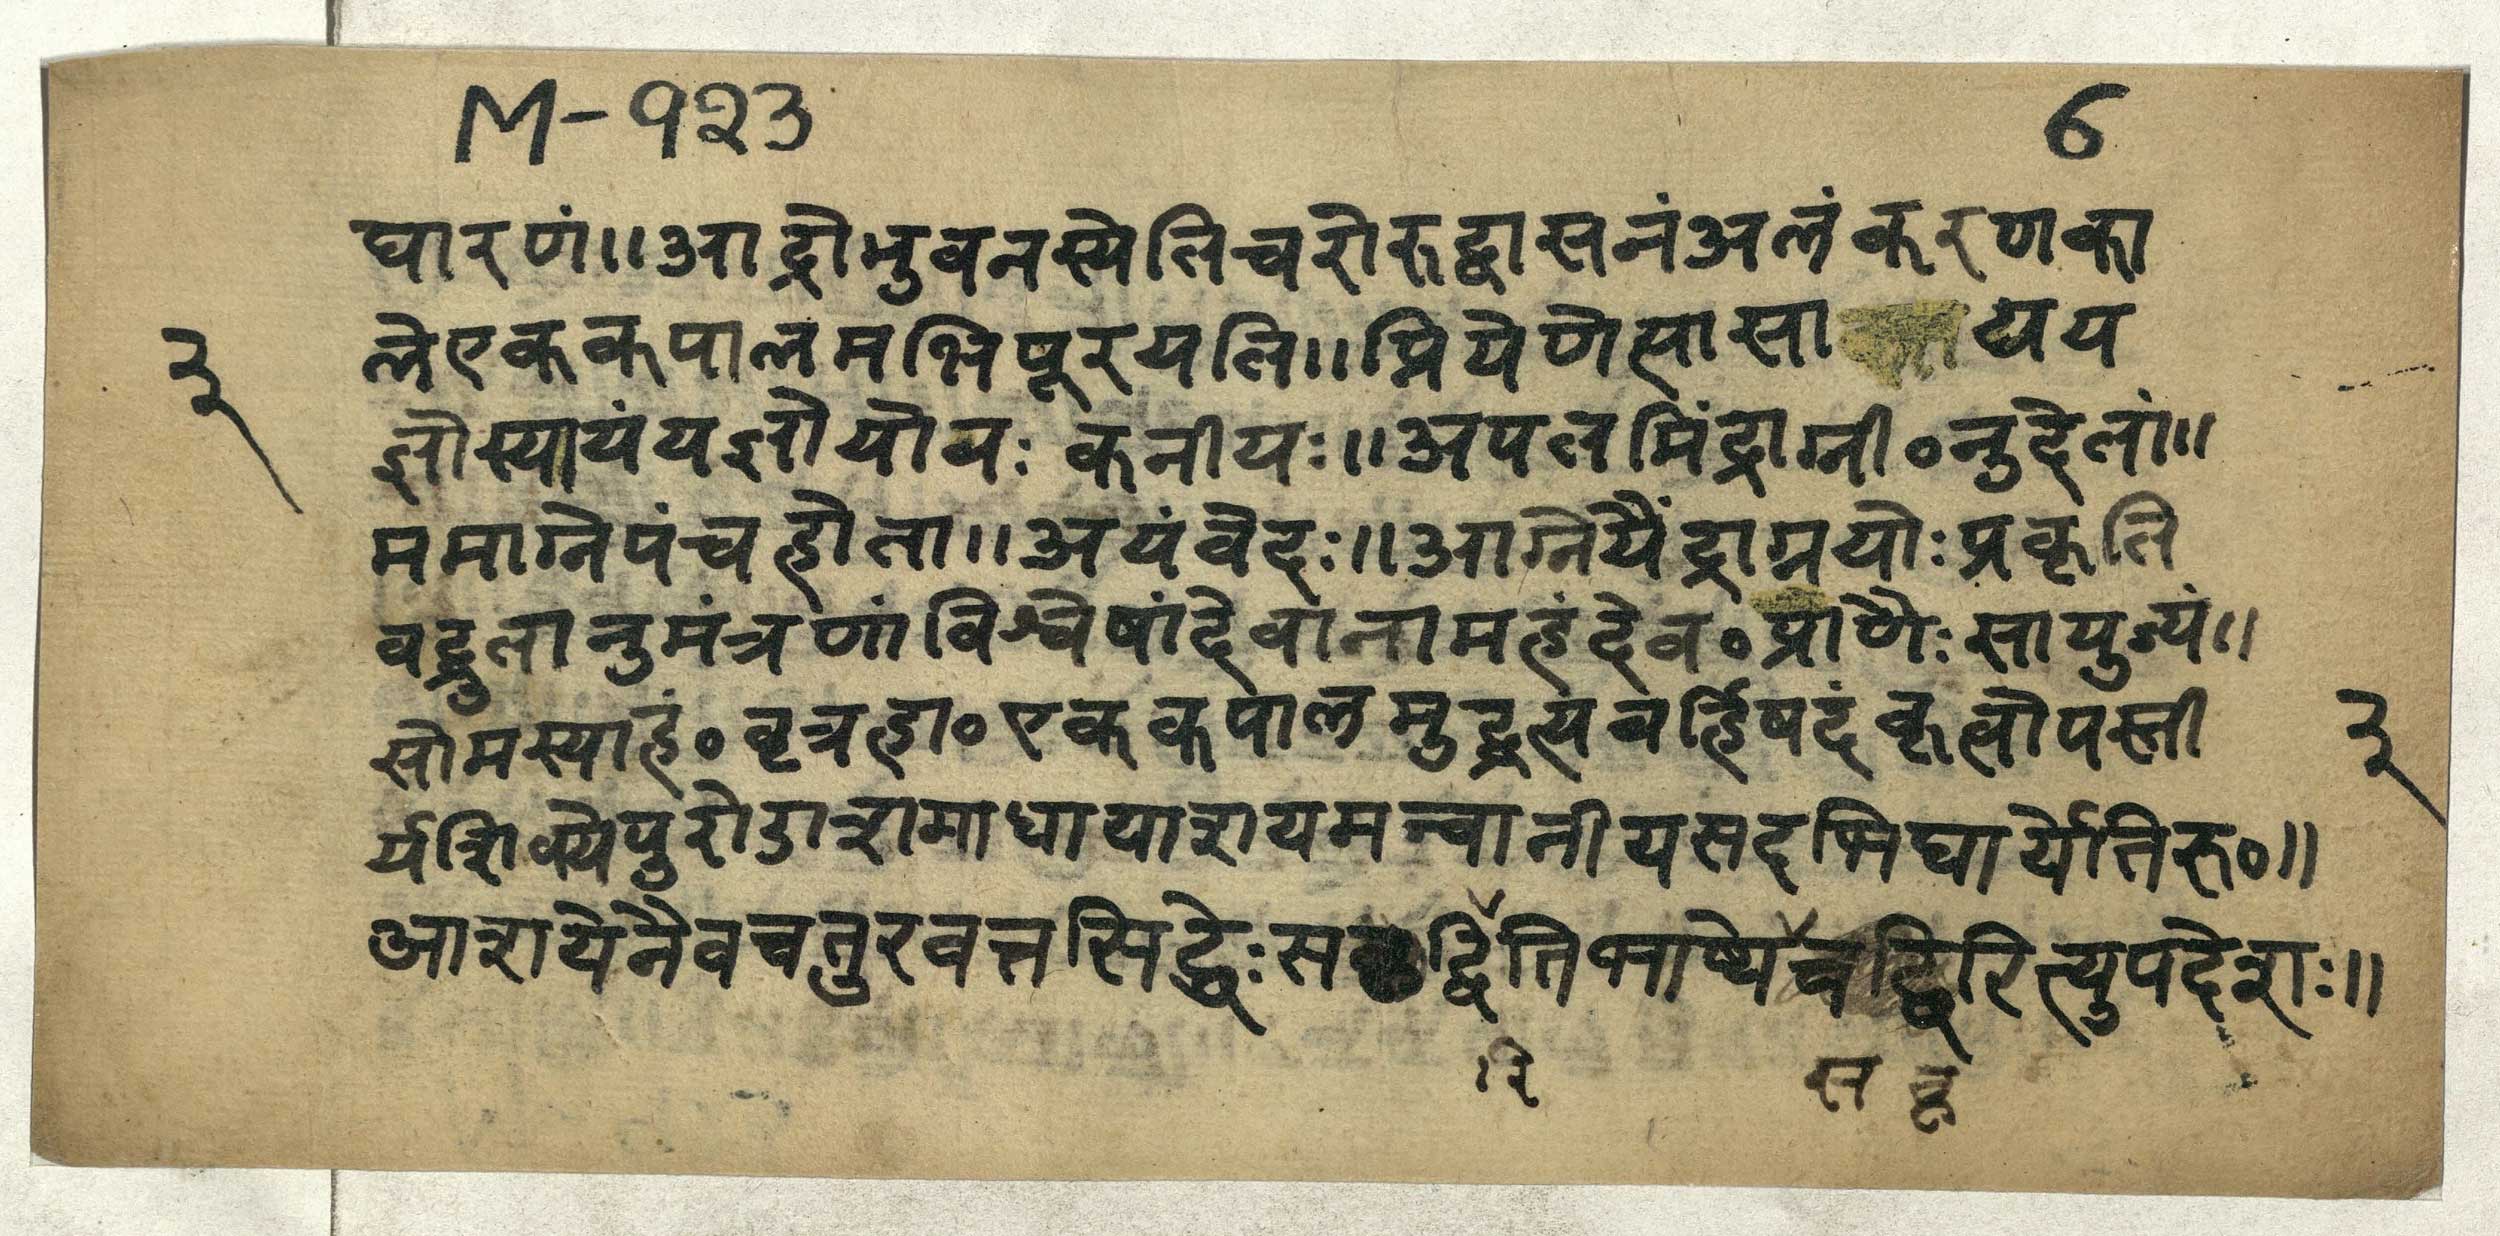 M-१२३ 6
घारणं॥आर्द्रोभुवनस्येतिचरोरुद्वासनंअलंकरणका
लेएककपालमभिपूरयति॥प्रियेणेत्यासा द्यय
३
ज्ञोस्यायंयज्ञोयोयः कनीयः॥अपतमिंद्राग्नी०नुदेतां॥
ममाग्नेपंचहोता॥अयंवेदः॥आग्नेयैंद्राग्नयोःप्रकृति
वद्धुतानुमंत्रणांविश्वेषांदेवानामहंदेव०प्राणैःसायुज्यं॥
सोमस्याहं०वृत्रहा०एककपालमुद्धृत्यबर्हिषदंकृत्वोपस्ती
३
र्यशिक्येपुरोडाशमाधायाशयमन्वानीयसदभिघार्येतिरु०॥
आशयेनैवचतुरवत्तसिद्धेःस द्वितिभाष्येचद्विरित्युपदेशः॥
रि स